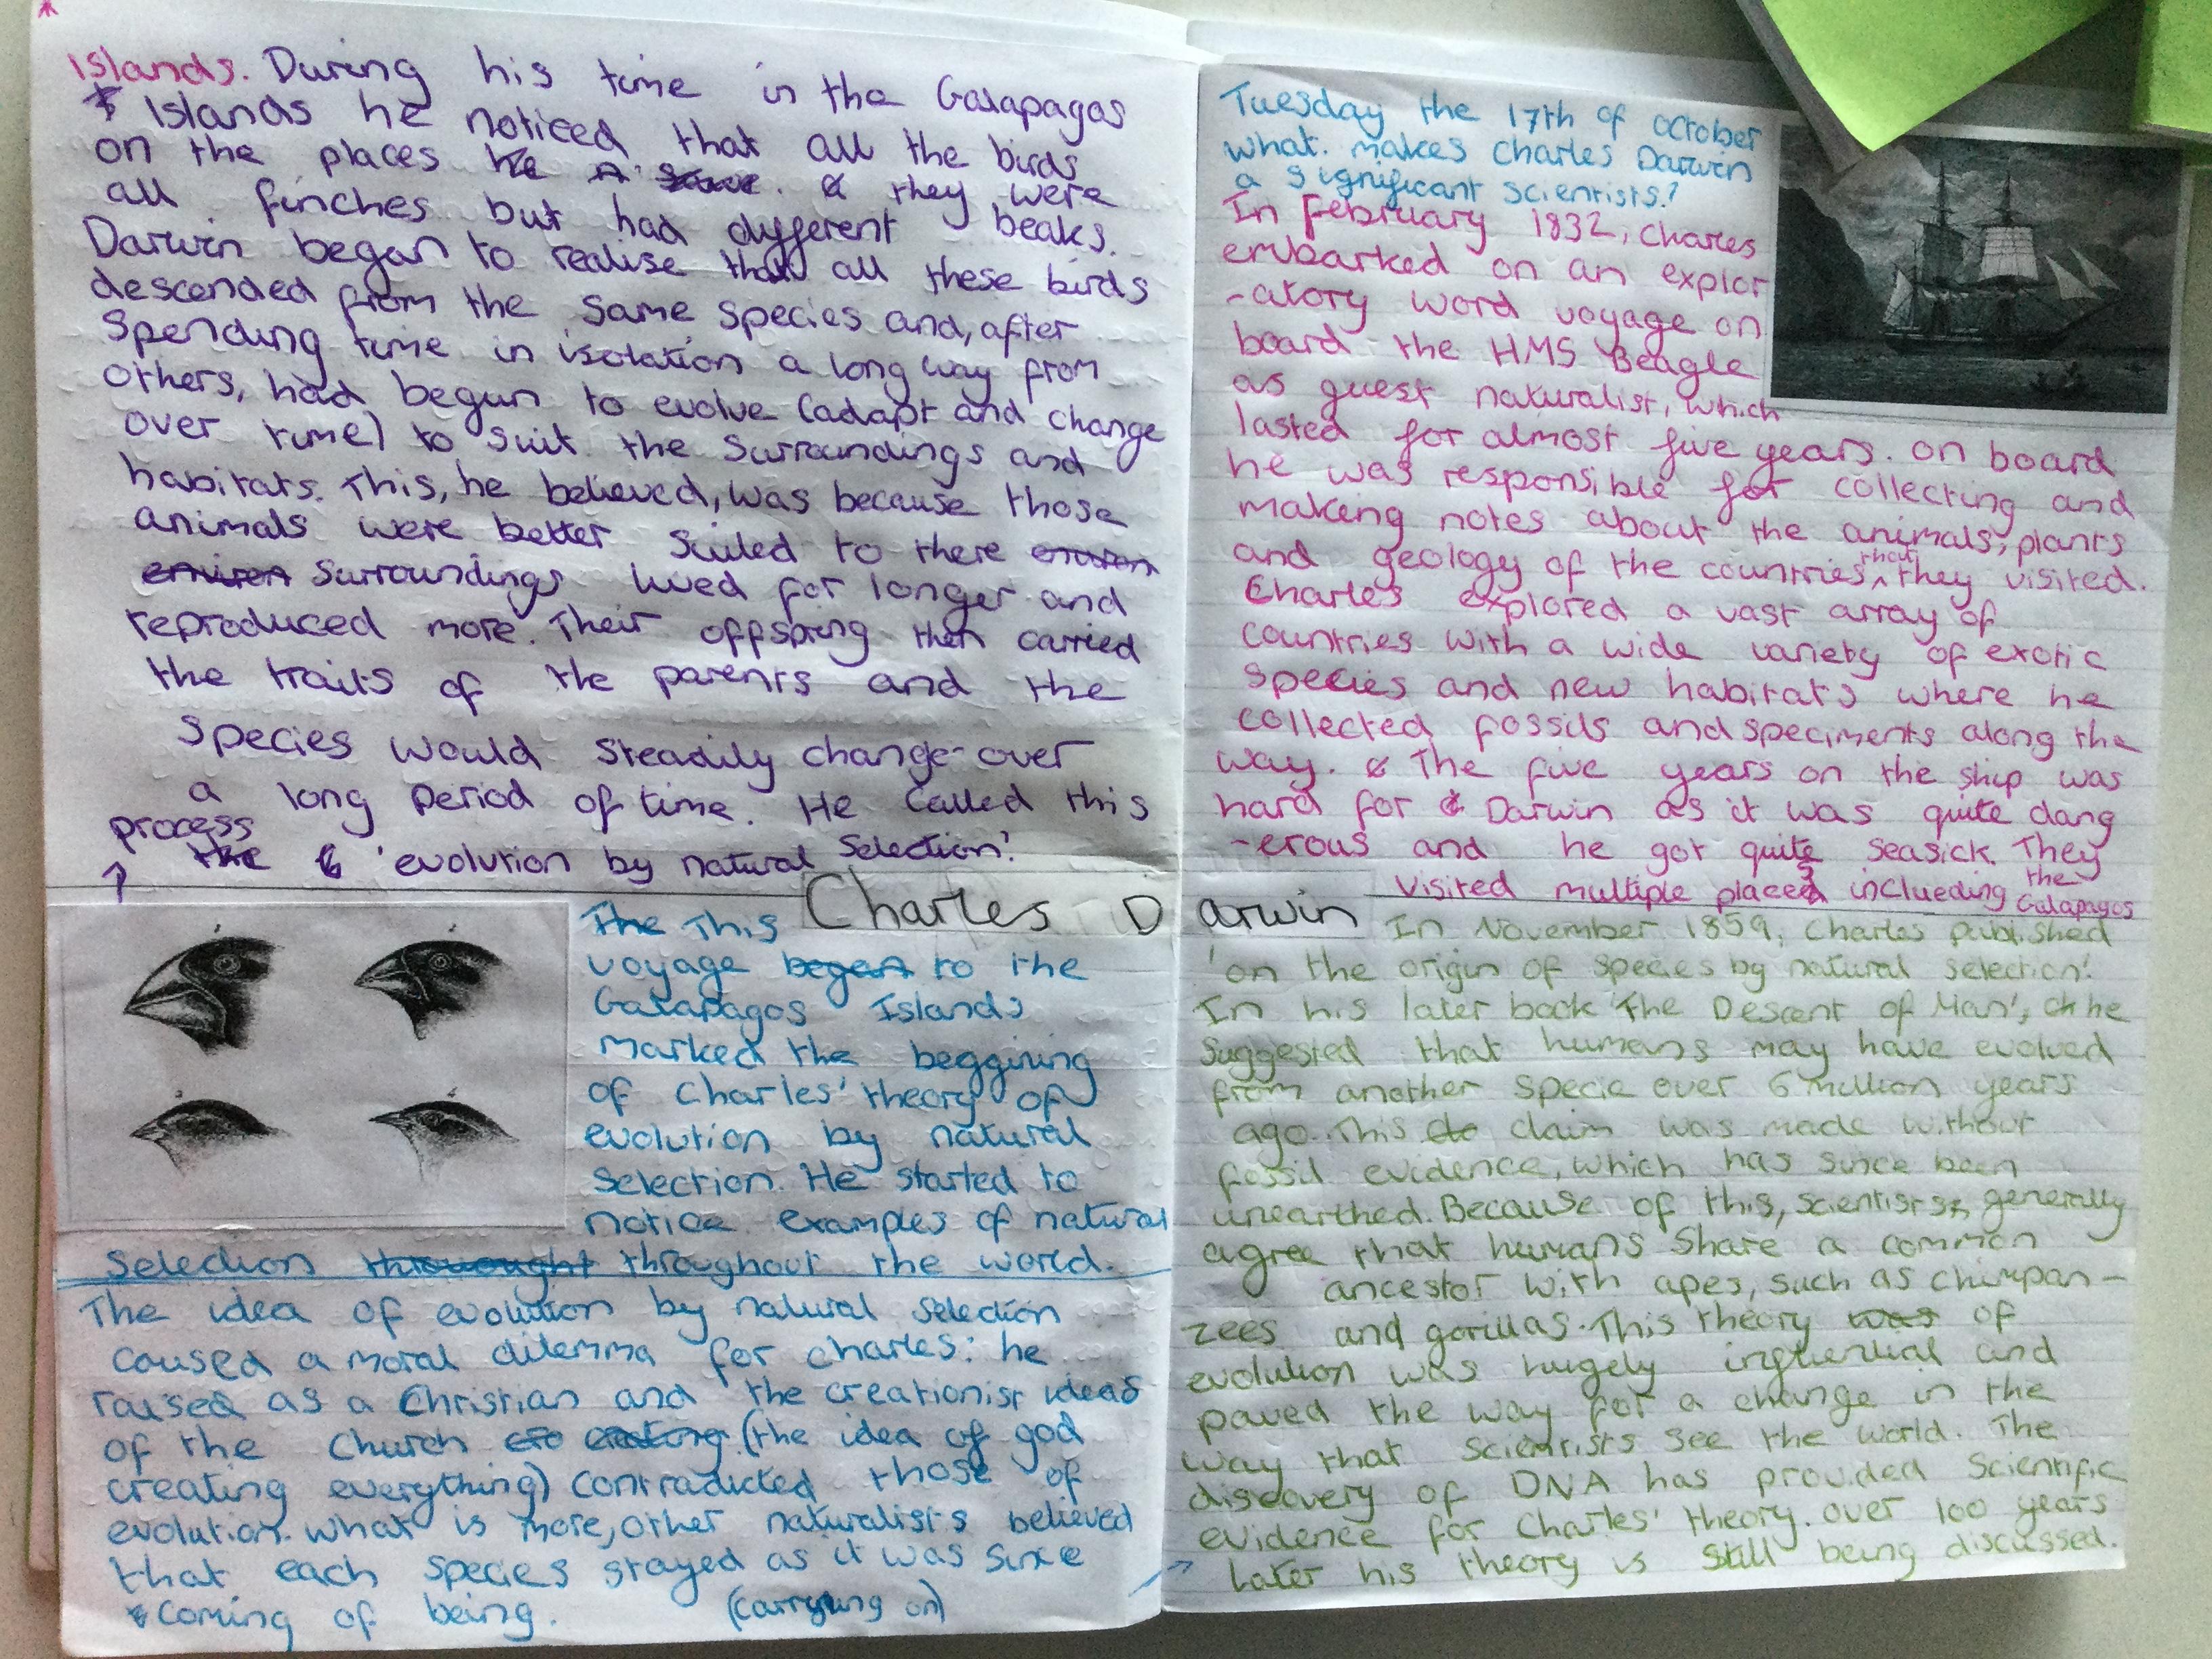 Islands. During his time in the Galapagos
Islands he noticed that all the birds
on the places he they were
all finches but had different beaks.
Darwin began to realise that all these birds
descended from the same species and, after
spending time in isolation a long way from
others, had begun to evolve (adapt and change
over time) to suit the surroundings and
habitats. This, he believed, was because those
animals were better suited to there
surroundings lived for longer and
reproduced more. Their offspring then carried
the traits of the parents and the
species would steadily change over
a long period of time. He called this
process
'evolution by natural selection'.
Charles Darwin
This
voyage to the
Galapagos Islands
marked the beggining
of Charles' theory of
evolution by natural
selection. He started to
notice examples of natural
selection throughout the world.
The idea of evolution by natural selection
caused a moral dilemma for charles: he
raised as a Christian and the creationist ideas
of the church (the idea of god
creating everything) contradicted those of
evolution. what is more, other naturalists believed
that each species stayed as it was since
coming of being. (carrying on)
Tuesday the 17th of october
what. makes charles Darwin
a significant scientists?
In February 1832, charles
embarked on an explor
-atory word voyage on
board the HMS Beagle
as guest naturalist, which
lasted for almost five years. on board
he was responsible for collecting and
making notes about the animals, plants
and geology of the countries that they visited.
Charles explored a vast array of
countries with a wide variety of exotic
species and new habitats where he
collected fossils and speciments along the
way. The five years on the ship was
hard for Darwin as it was quite dang
-erous and he got quite seasick. They
visited multiple places inclueding the Galapagos
In November 1859, Charles published
'on the origin of species by natural selection'.
In his later book 'The Descent of Man', he
suggested that humans may have evolved
from another specie over 6 million years
ago. This claim was made without
fossil evidence, which has since been
unearthed. Because of this, scientists generally
agree that humans share a common
ancestor with apes, such as chimpan-
zees and gorillas. This theory of
evolution was hugely influential and
paved the way for a change in the
way that scientists see the world. The
discovery of DNA has provided scientific
evidence for Charles' theory. over 100 years
later his theory is still being discussed.